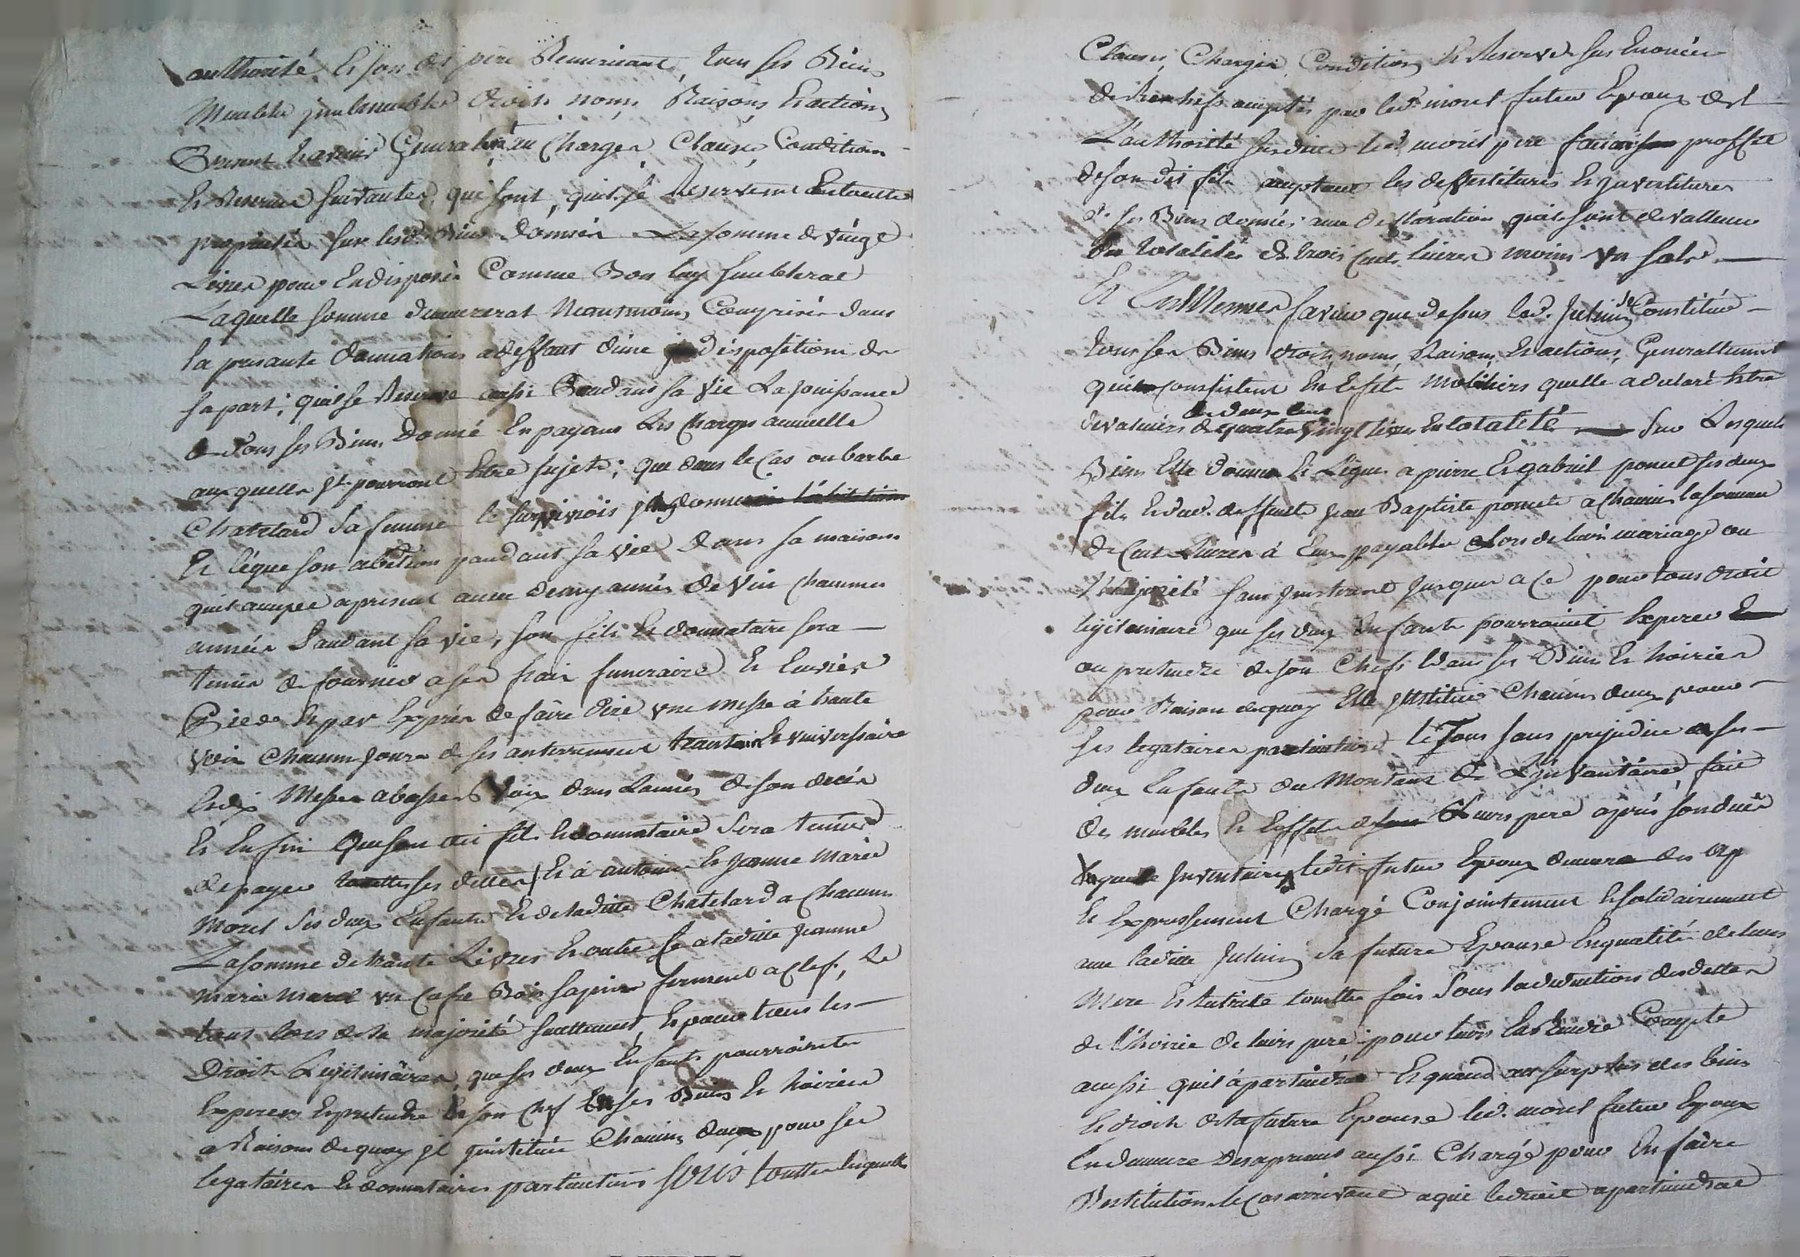 authorité Et son dit pere Remerciant, tous ses Biens
Meuble Immeuble droits noms Raisons Et actions
present Et avenir Generalement aux Charges Clauses Conditions
Et Reserves suivantes, que sont, qu'il se Reserve en toutte
proprieté sur lesd. Biens donnés La somme de vingt
Livres pour En disposer Comme Bon luy semblerat
Laquelle somme demeurerat Neantmoins Comprise dans
la presante donnation a deffaut d'une disposition de
sa part; qu'il se Reserve aussi Pendans sa vie La jouissance
de tous ses Biens donné En payant Les Charges annuelle
auxquelles Ils pourront Etre sujets; que dans le Cas ou barbe
Chatelard sa femme le survivrois
Et légue son abitation pandant sa vie dans sa maison
qu'il occupe a presant avec deux années de vin chaumes
année Pandant sa vie, son fils Et donnataire sera
tenus de fournir a ses frais funeraire Et Euvres
Pies de Et par Exprés de faire dire une messe à haute
voix Chacun Jours de ses anterrement Et universsaire
Et dix Messes a basses Voix dans Lannée de son decés
Et En fin que son dit fils Et donnataire sera tenus
de payer touttes ses dettes, Et à antoine Et Jeanne Marie
Morel ses deux Enfants Et de ladite Chatelard a Chacun
La somme de trante Livres Et outre Ce a ladite Jeanne
marie Morel un Cofre Bois sapin fermant a Clef, Le
tout lors de la majorité seullement, Et pour tous les
Droits Legitimaires que ses deux Enfants pourroint
Esperer Et pretendre de son Chef En ses Biens Et hoirie
a Raison de quoy Il institue Chacun deux pour ses
legataires Et donnataires particuliers sous touttes lesquelles
Clauses, Charges Conditions Et Reserves sus Enoncées
acceptés par led. morel futeur Epoux de l
L'authorité susdite led. morel pere faisant proffit
de son dit fils acceptant les devestitures Et Investitures
de ses Biens donnés avec declaration quils sont de valleur
En totalité de trois Cent livres moins un sols.
Et En Mesmes faveur que dessus lad. Jullin se Constitue
tous ses Biens droits, noms, Raisons, Et actions, Generallement
qui consistent En Effets Mobiliers quelle a declaré Etre
de valeurs de deux cens quatre vingt livres En totalité sur Lesquels
Biens Elle donne Et Légue a pierre Et gabriel poncet ses deux
fils Et dud. deffunt Jean Baptiste poncet a chacun la somme
de Cent Livres à Eux payable Lors de leur mariage ou
Majorité sans Interest Jusques a Ce pour tous droits
legitimaire que ses deux Enfants pourroint Esperer
ou pretendre de son Chefs dans ses Biens Et hoirie
pour Raison de quoy Elle Institue Chacun deux pour
ses legataires particuliers le Tous sans prejudice a ses
deux Enfants du Montant de L'Inventaire fait
des meubles Et Effets de Leurs pere aprés son decés
lequel Inventaire ledit futeur Epoux demeure des
Et Expressement Chargé Conjointement Et solidairement
avec ladite Jullin sa future Epouse En qualité de leurs
Mere Et tutrice toutte fois sous la deduction des dettes
de l'hoirie de leurs pere pour leurs En Rendre Compte
aussi qu'il apartiendra Et quand au surplus des biens
Et droits de la future Epouse led. morel futeur Epoux
En demeure desapresent aussi Chargé pour En faire
Restitution le Cas arrivant a qui le droit apartiendrat